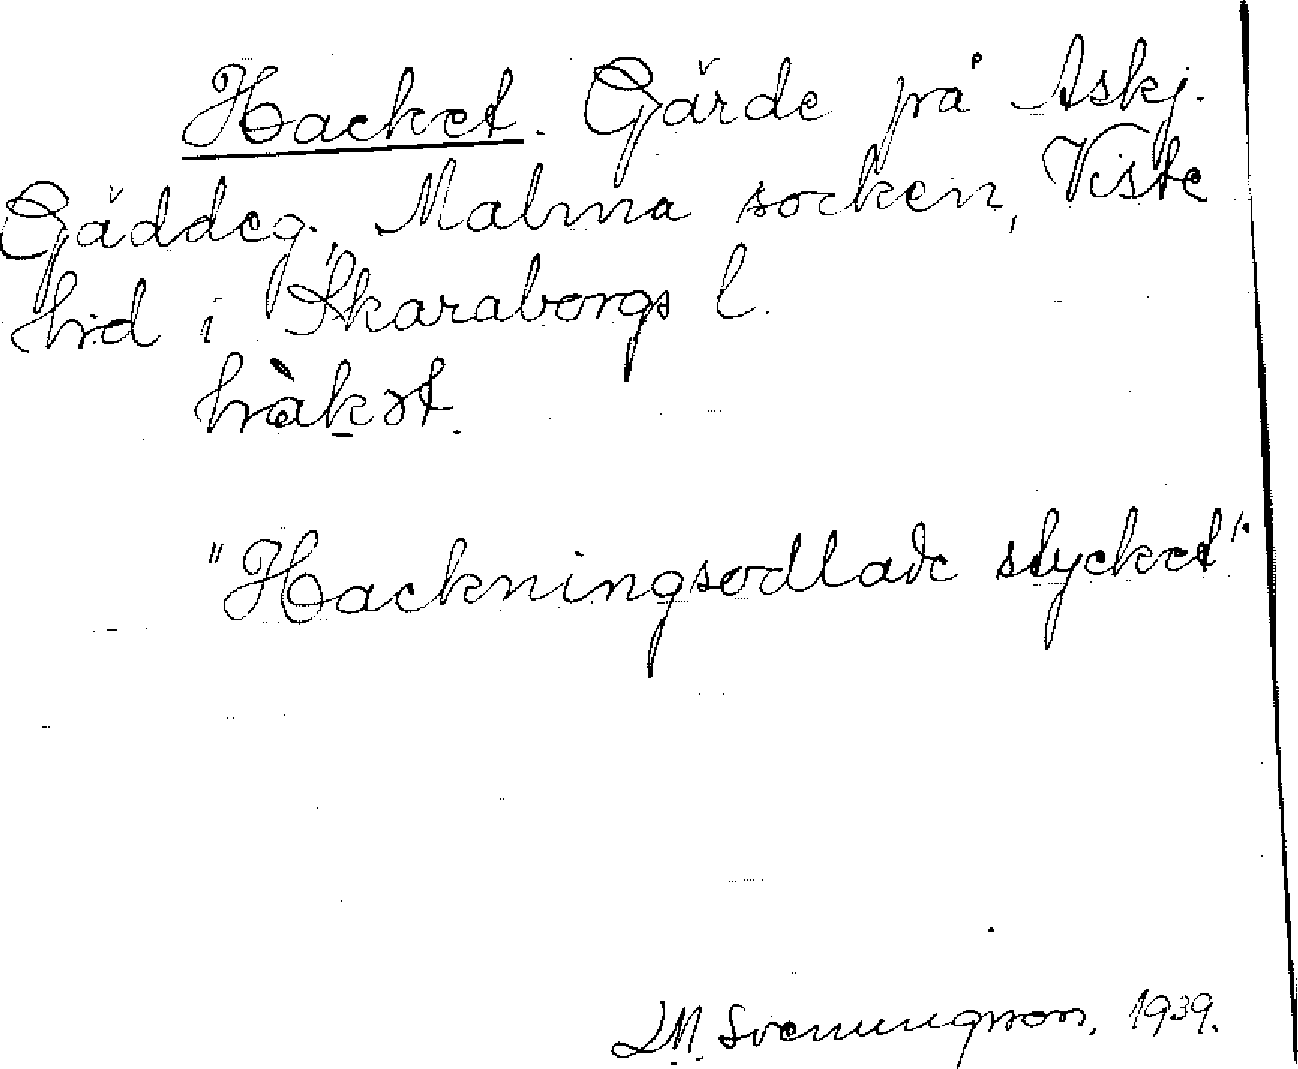 Hacket. Gärde på Askj.
Gäddeg., Malma socken, Viste
hd i Skaraborgs l.
hàkət.
"Hackningsodlade stycket".
LM. Svenungsson, 1939.